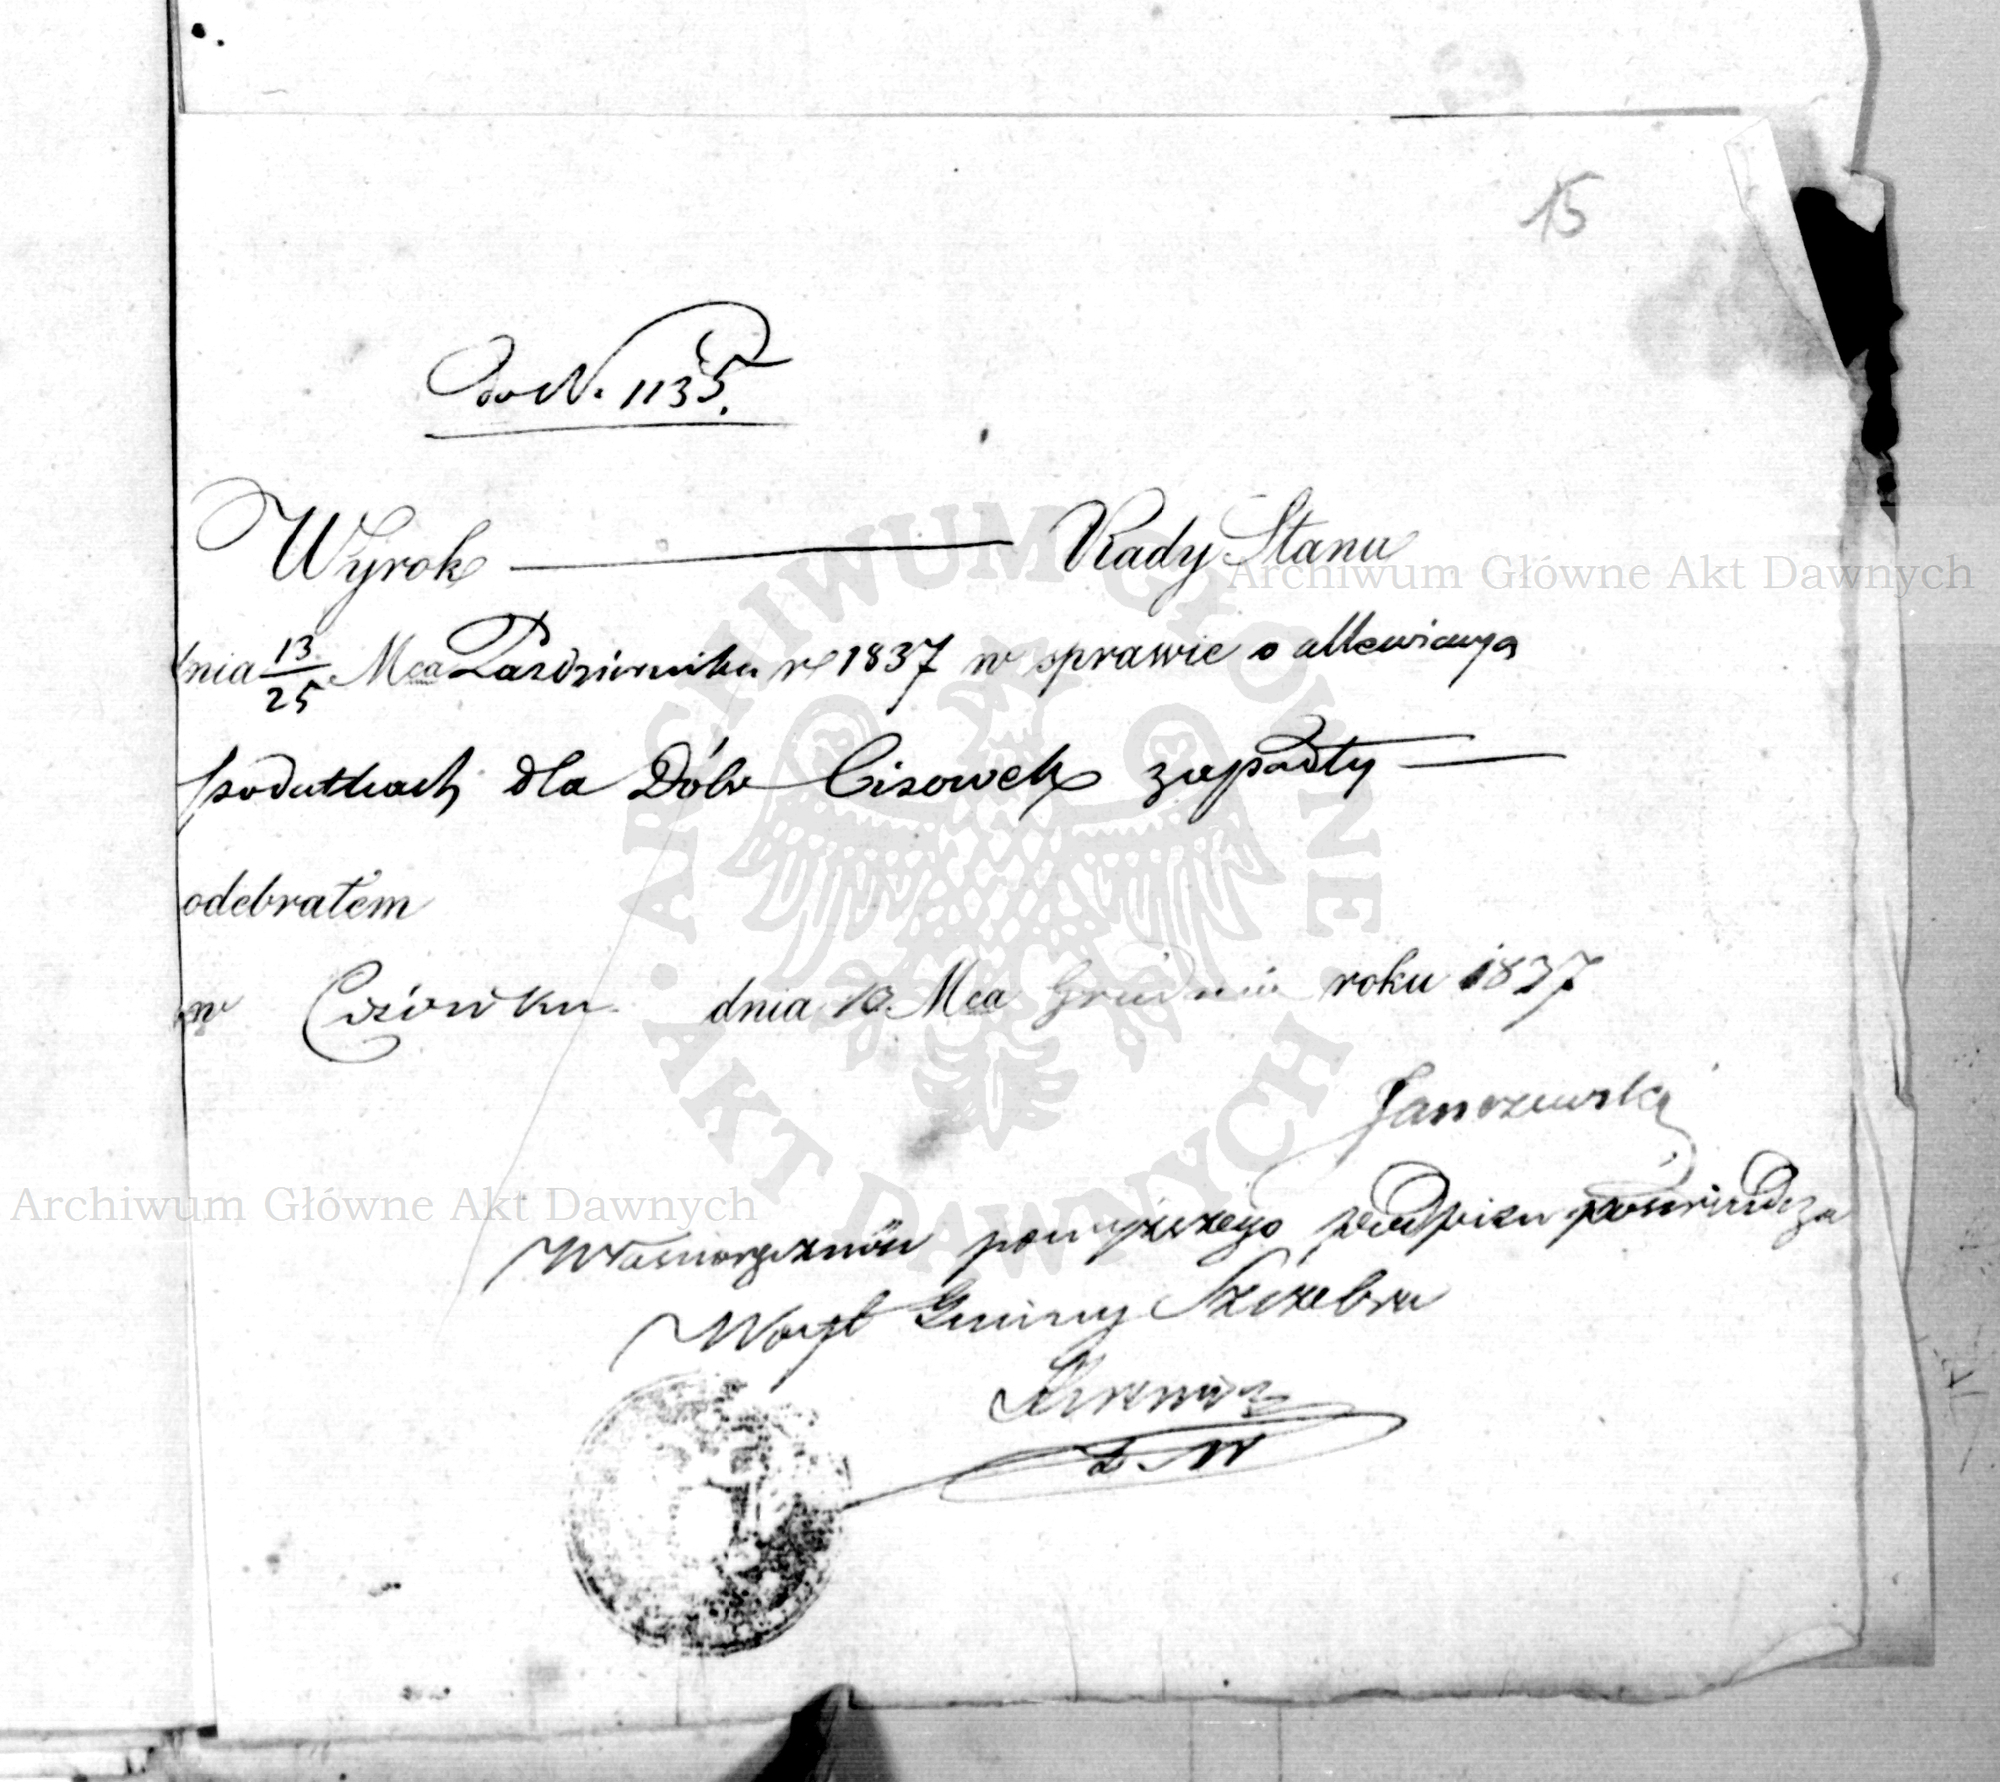 15
Do N. 1135.
Wyrok ——— Rady Stanu
dnia 13/25 Mca Października r 1837 w sprawie o allewiacyą
podatkach dla Dóbr Cisowek zapadły —
odebrałem
w Cisówku dnia 10 Mca Grudnia roku 1837
Janczewski
Własnoręczność powyższego podpisu poświadcza
Woyt Gminy Szczebra
Z. W
ARCHIWUM GŁÓWNE AKT DAWNYCH
Archiwum Główne Akt Dawnych
Archiwum Główne Akt Dawnych